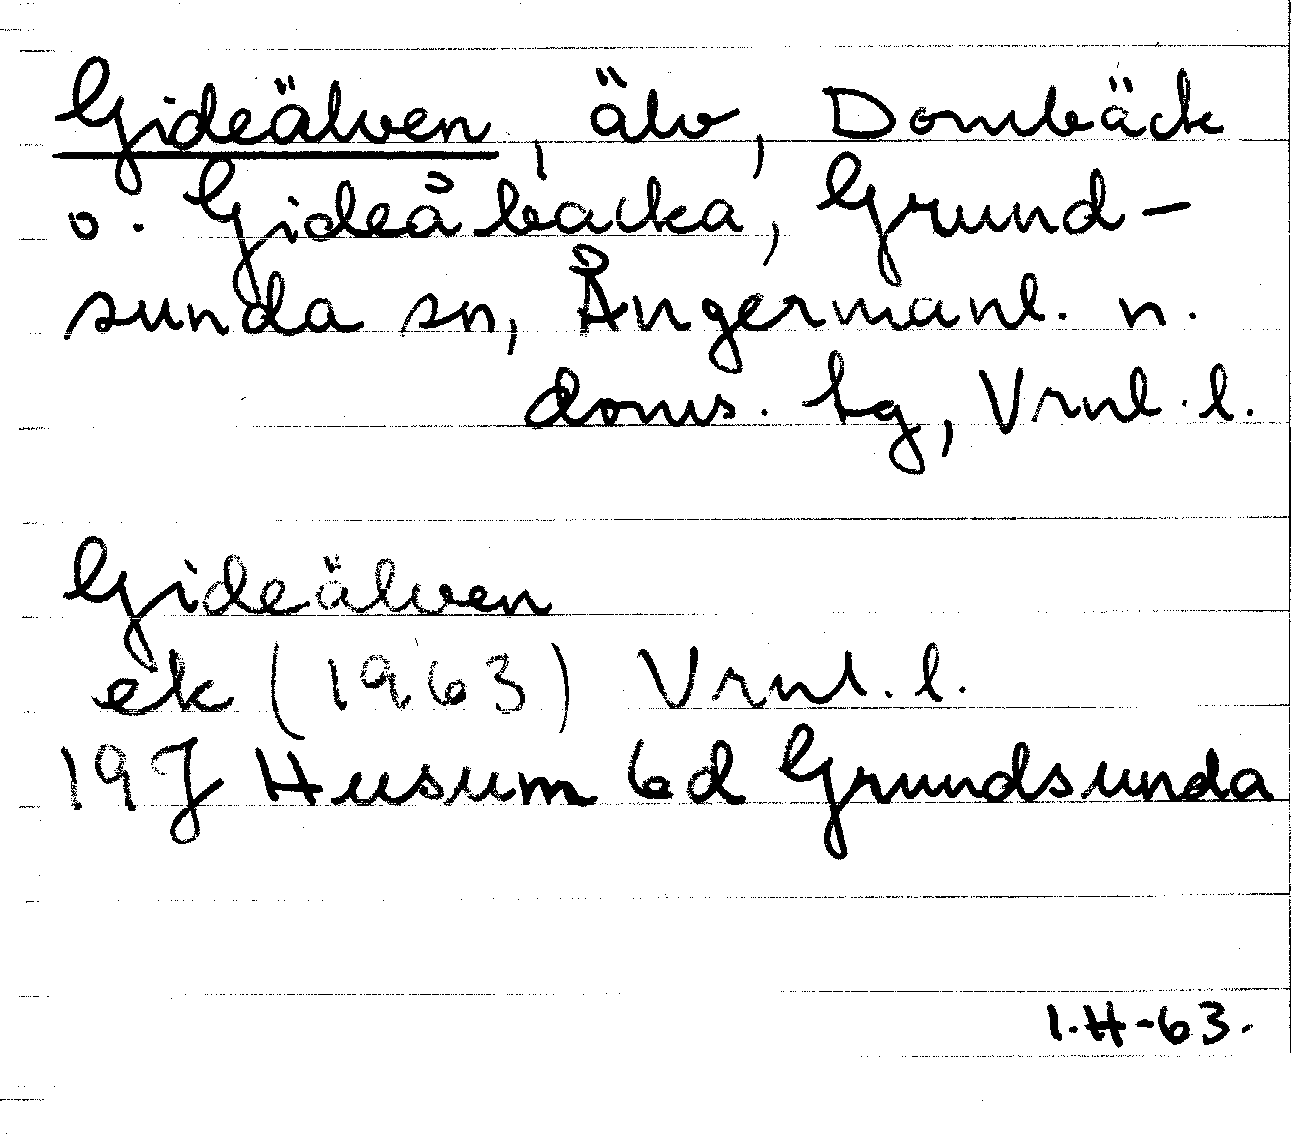 Gideälven, älv, Dombäck
o. Gideåbacka, Grund-
sunda sn, Ångermanl. n.
doms. tg, Vrnl. l.
Gideälven
ek (1963) Vrnl. l.
19J Husum 6d Grundsunda
I.H-63.